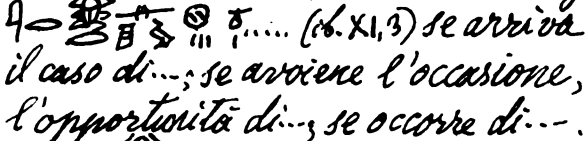 ..... (ib. XI, 3) se arriva
il caso di...; se avviene l'occasione,
l'opportunità di...; se occorre di....